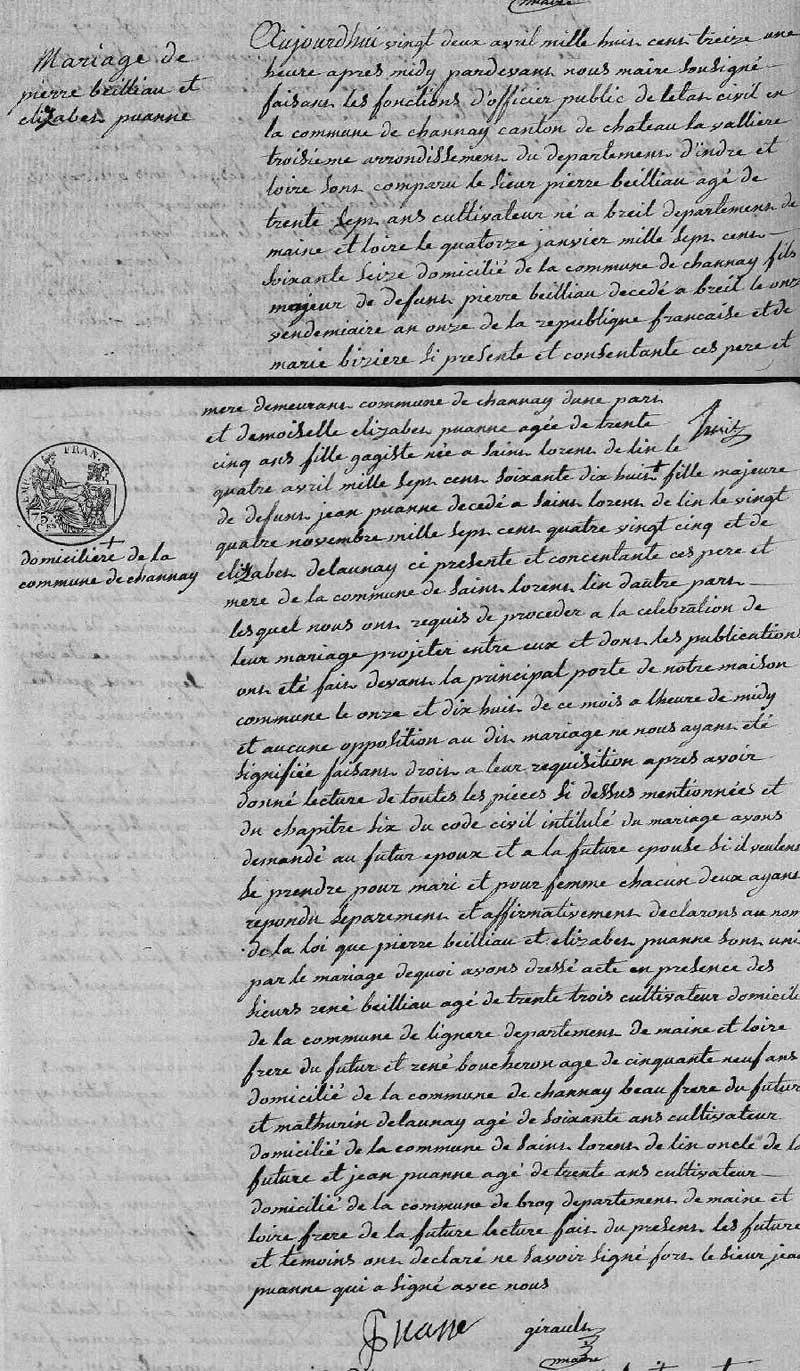 maire
Mariage de
pierre beilliau et
elizabet puanne
Aujourdhui vingt deux avril mille huit cent treize une
heure apres midy pardevant nous maire sousigné
faisant les fonctions d'officier public de letat civil en
la commune de channay canton de chateau la valliere
troisieme arrondissement du departement d'indre et
loire sont comparu le sieur pierre beilliau agé de
trente sept ans cultivateur né a breil departement de
maine et loire le quatorze janvier mille sept cent
soixante seize domicilié de la commune de channay fils
majeur de defunt pierre beilliau decedé a breil le onze
vendemiaire an onze de la republique francaise et de
marie biziere si presente et consentante ces pere et
mere demeurant commune de channay dune part
et demoiselle elizabet puanne agée de trente
cinq ans fille gagiste née a saint lorent de lin le
quatre avril mille sept cent soixante dix huit + fille majeure
de defunt jean puanne decedé a saint lorent de lin le vingt
quatre novembre mille sept cent quatre vingt cinq et de
elizabet delaunay ci presente et concentante ces pere et
mere de la commune de saint lorent lin dautre part
lesquel nous ont requis de proceder a la celebration de
leur mariage projeter entre eux et dont les publications
ont eté fait devant la principal porte de notre maison
commune le onze et dix huit de ce mois a lheure de midy
et aucune opposition au dit mariage ne nous ayant eté
signifiée faisant droit a leur requisition apres avoir
donné lecture de toutes les pieces si dessus mentionnées et
du chapitre six du code civil intitulé du mariage avons
demandé au futur epoux et a la future epouse si il veulent
se prendre pour mari et pour femme chacun deux ayant
repondu separement et affirmativement declarons au nom
de la loi que pierre beilliau et elizabet puanne sont uni
par le mariage dequoi avons dressé acte en presence des
sieurs rené beilliau agé de trente trois cultivateur domicilié
de la commune de lignere departement de maine et loire
frere du futur et rené boucheron age de cinquante neuf ans
domicilié de la commune de channay beau frere du futur
et mathurin delaunay agé de soixante ans cultivateur
domicilié de la commune de saint lorent de lin oncle de la
future et jean puanne agé de trente ans cultivateur
domicilié de la commune de broq departement de maine et
loire frere de la future lecture fait du present les future
et temoins ont declaré ne savoir signé fort le sieur jean
puanne qui a signé avec nous
FRAN.
75
+
domiciliére de la
commune de channay
puanne
girault
maire